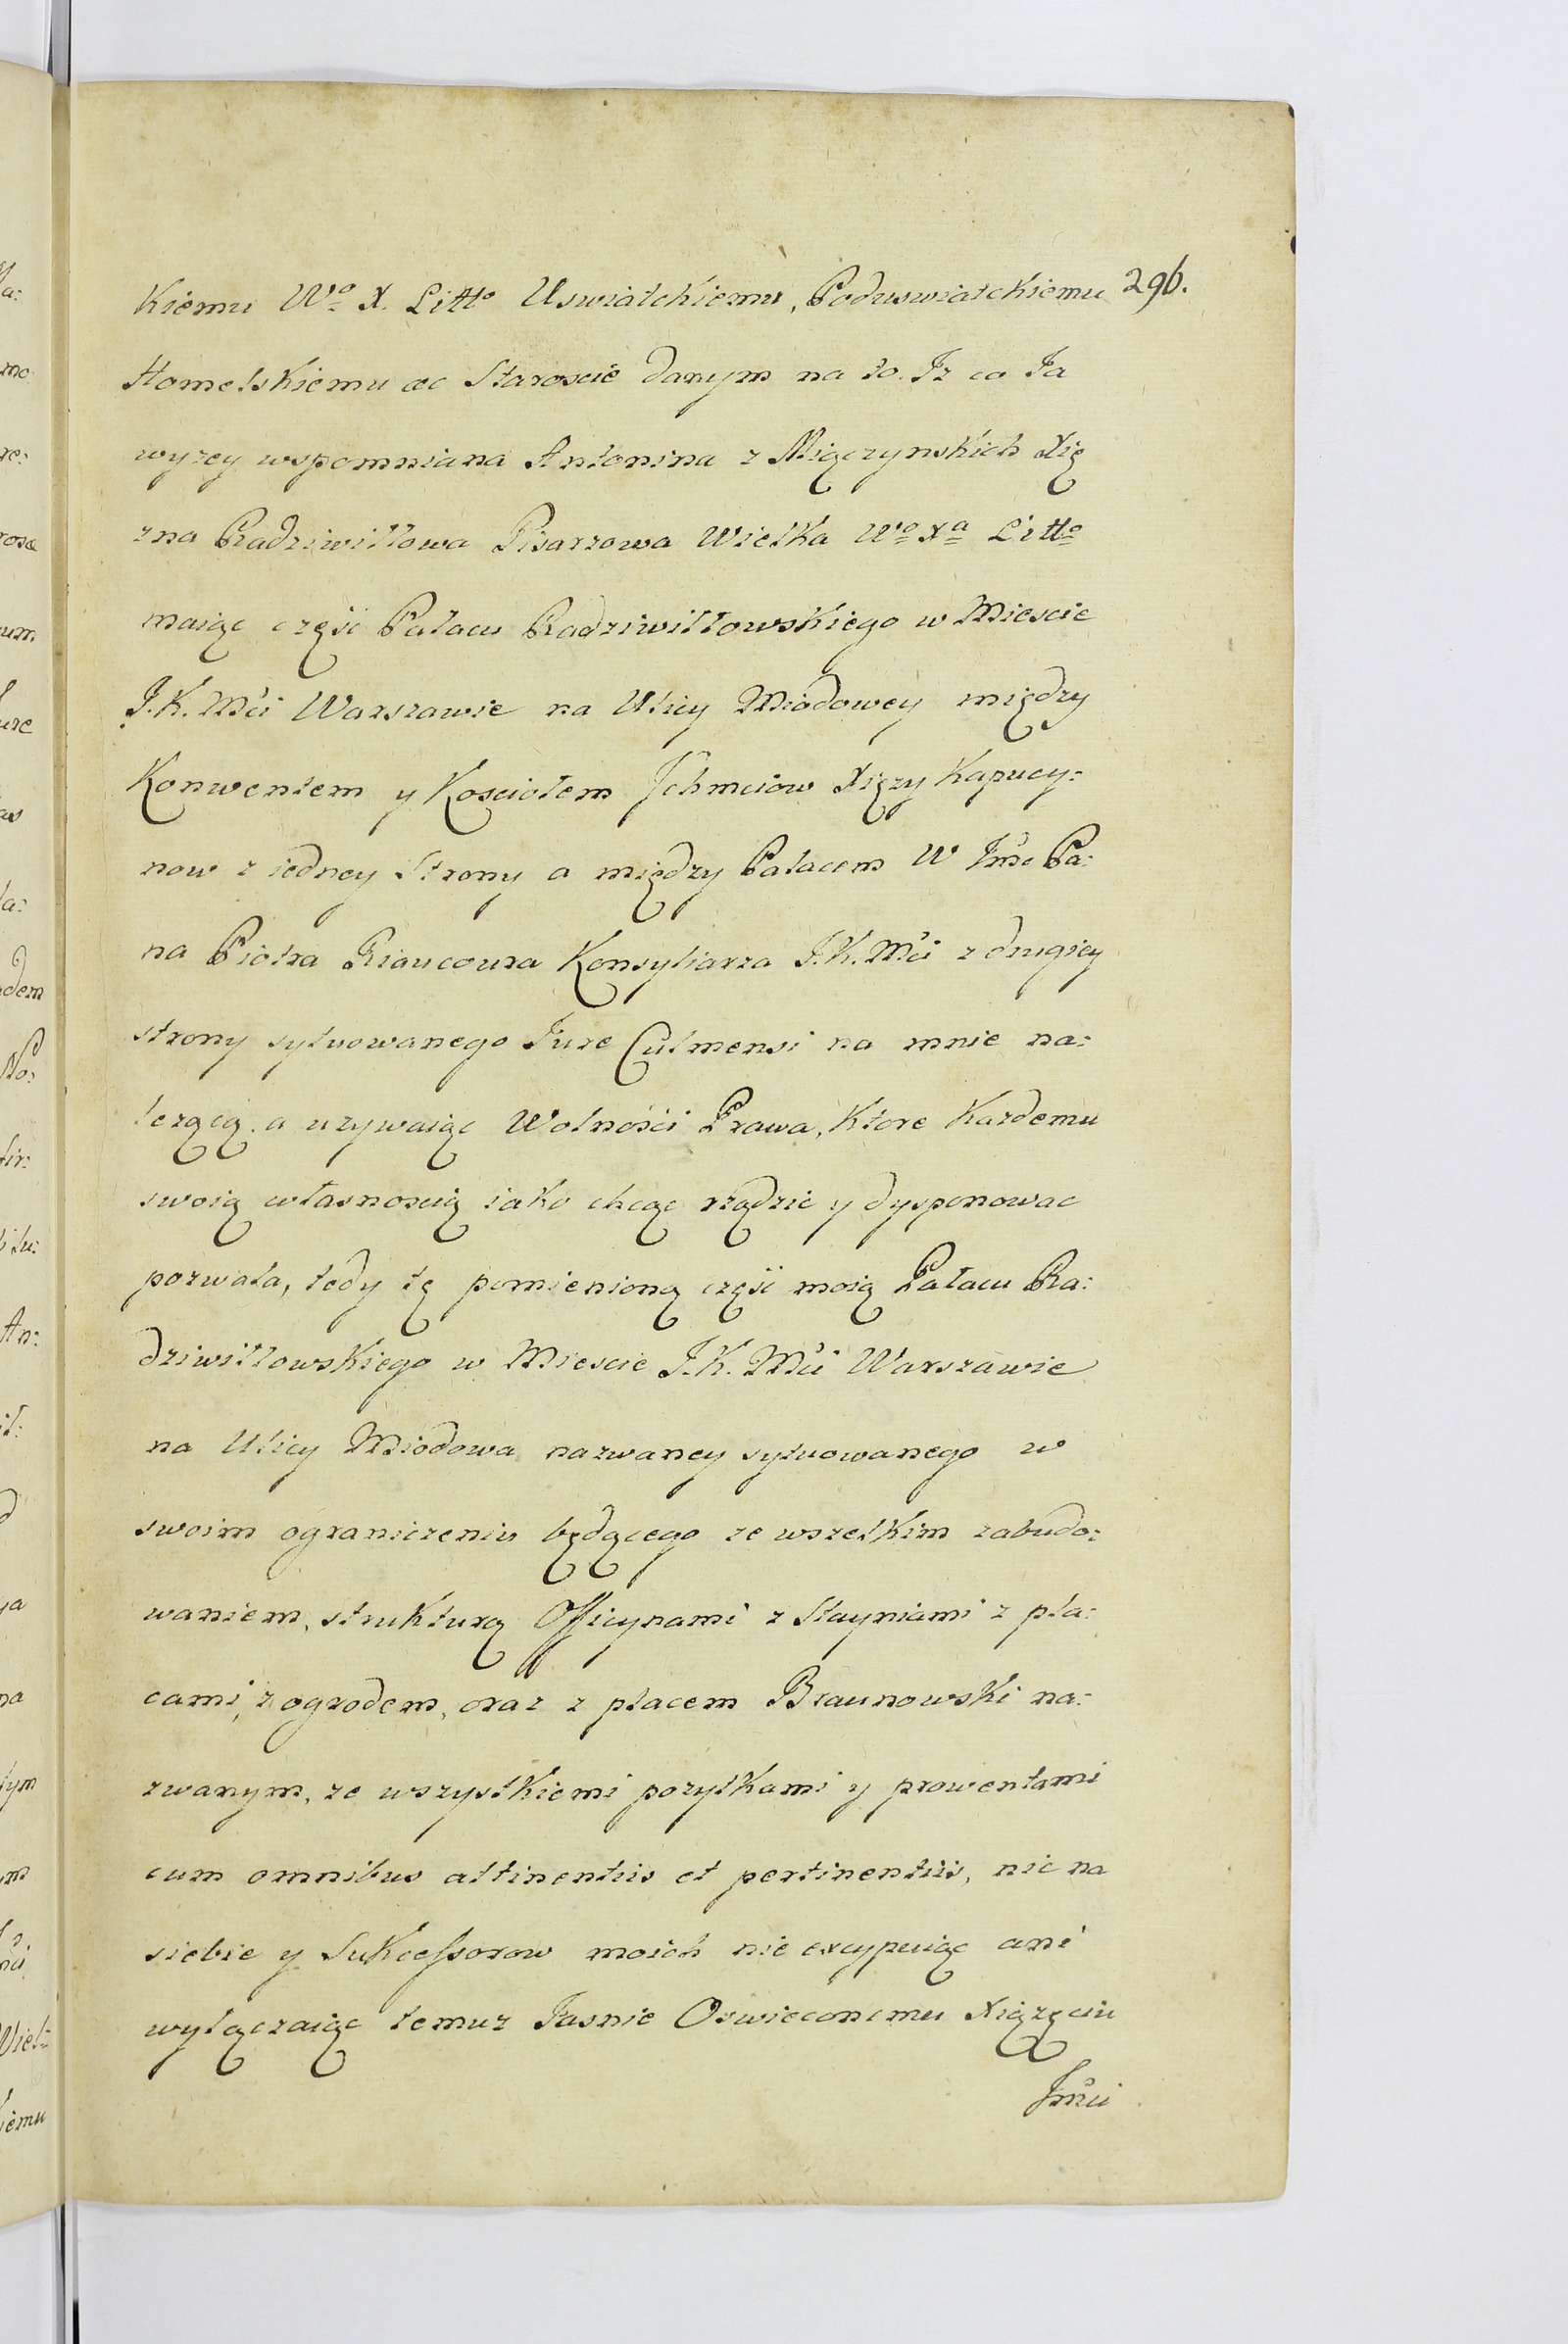 Kiemu Wo X. Litto Uswiatckiemu, Poduswiatckiemu 296.
Homelskiemu &c Staroscie danym na to. Iz co Ja
wyzey wspomniana Antonina z Miączynskich Xię
zna Radziwiłłowa Pisarzowa Wielka Wo Xa Litto
maiąc część Pałacu Radziwiłłowskiego w Miescie
J.K.Mći Warszawie na Ulicy Miodowey między
Konwentem y Kosciołem Jchmciow Xięzy Kapucy:
now z iedney Strony a między Pałacem W Jmć Pa:
na Piotra Riaucoura Konsyliarza J.K.Mći z drugiey
strony sytuowanego Jure Culmensi na mnie na:
lezącą, a uzywaiąc Wolności Prawa, Ktore Kazdemu
swoią własnoscią iako chcąc rządzic y dysponowac
pozwala, tedy tę pomienioną część moią Pałacu Ra:
dziwiłłowskiego w Miescie J.K.Mći Warszawie
na Ulicy Miodowa nazwaney sytuowanego w
swoim ograniczeniu będącego ze wszelkim zabudo:
waniem, strukturą Officynami z Stayniami z pla:
cami, z ogrodem, oraz z placem Braunowski na:
zwanym, ze wszystkiemi pozytkami y prowentami
cum omnibus attinentiis et pertinentiis, nic na
siebie y Sukcessorow moich nie excypuiąc ani
wyłączaiąc temuz Jasnie Oswieconemu Xiązęciu
Jmći
ła:
mo
ure
la:
dem
No:
An:
ya
na
tym
Wiel:
kiemu